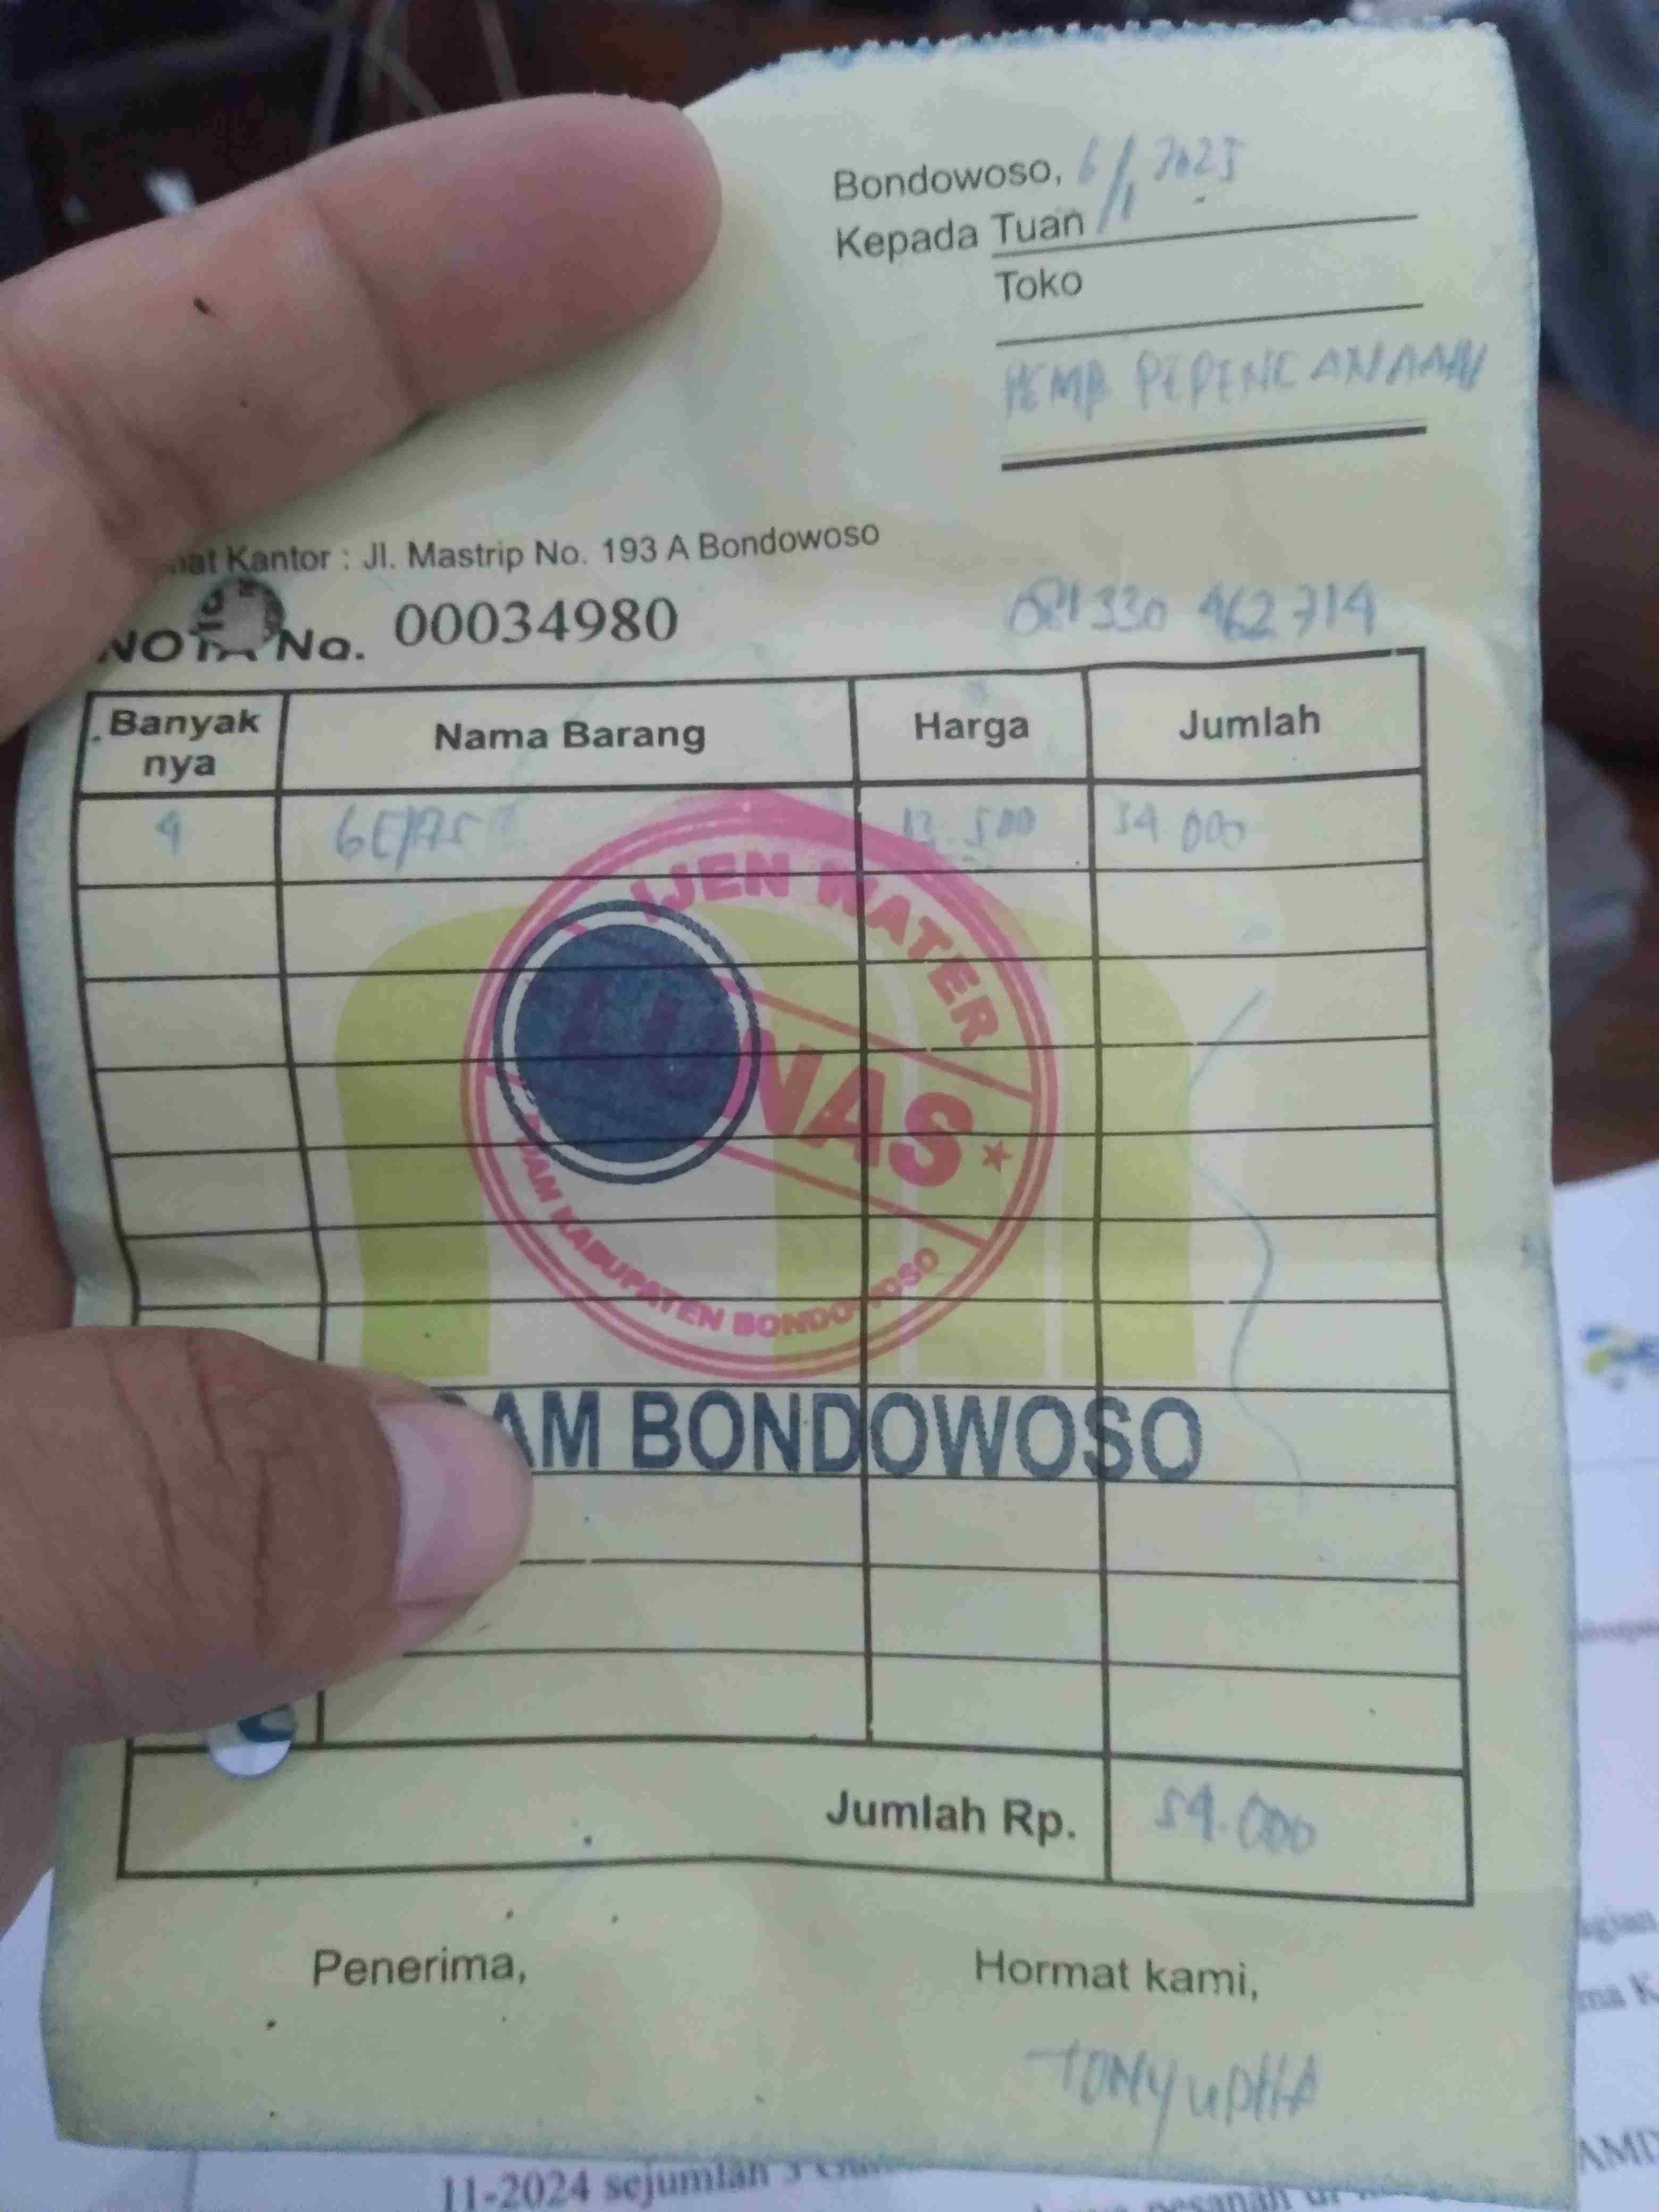 Bondowoso, 6/1 2025
Kepada Tuan
Toko
PEMB PERENCANAAN
Kantor : Jl. Mastrip No. 193 A Bondowoso
NOTA No. 00034980
081 330 462 714
Banyak nya Nama Barang Harga Jumlah
4 GELAS 13.500 54 000
IJEN WATER
LUNAS
KABUPATEN BONDOWOSO
BONDOWOSO
Jumlah Rp. 54.000
Penerima, Hormat kami,
11-2024 sejumlah 3